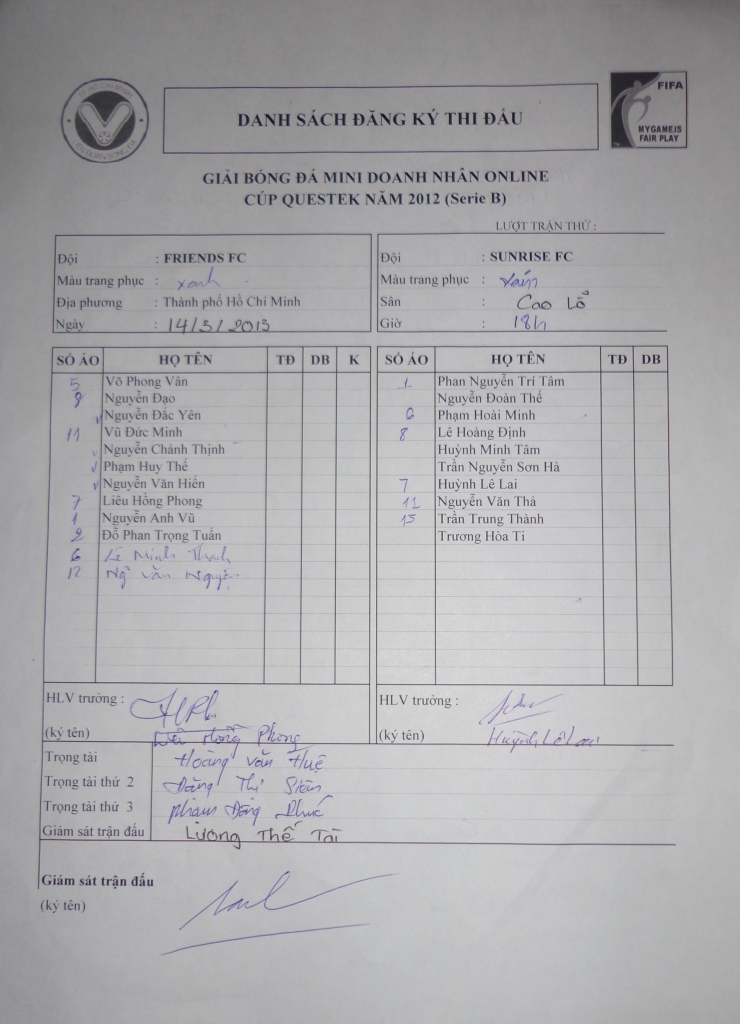 DANH SÁCH ĐĂNG KÝ THI ĐẤU
FIFA
MYGAMEJS
FAIR PLAY
GIẢI BÓNG ĐÁ MINI DOANH NHÂN ONLINE
CÚP QUESTEK NĂM 2012 (Serie B)
LƯỢT TRẬN THỨ :
Đội : FRIENDS FC
Màu trang phục : xanh
Địa phương : Thành phố Hồ Chí Minh
Ngày : 14/3/2013
Đội : SUNRISE FC
Màu trang phục :
Sân : Cao Lỗ
Giờ : 18h
SỐ ÁO HỌ TÊN TĐ DB K
5 Võ Phong Vân
9 Nguyễn Đạo
Nguyễn Đắc Yên
11 Vũ Đức Minh
Nguyễn Chánh Thịnh
Phạm Huy Thế
Nguyễn Văn Hiến
7 Liêu Hồng Phong
1 Nguyễn Anh Vũ
2 Đỗ Phan Trọng Tuấn
6 Lê Minh Thanh
12 Ngô Văn Nguyên
SỐ ÁO HỌ TÊN TĐ DB
1 Phan Nguyễn Trí Tâm
Nguyễn Đoàn Thế
6 Phạm Hoài Minh
8 Lê Hoàng Định
Huỳnh Minh Tâm
Trần Nguyễn Sơn Hà
7 Huỳnh Lê Lai
11 Nguyễn Văn Thả
15 Trần Trung Thành
Trương Hòa Ti
HLV trưởng :
(ký tên) Hồng Phong
HLV trưởng :
(ký tên) Huỳnh Lê Lai
Trọng tài Hoàng Văn Huệ
Trọng tài thứ 2 Đặng Thị
Trọng tài thứ 3 Phạm
Giám sát trận đấu Lương Thế Tài
Giám sát trận đấu
(ký tên)